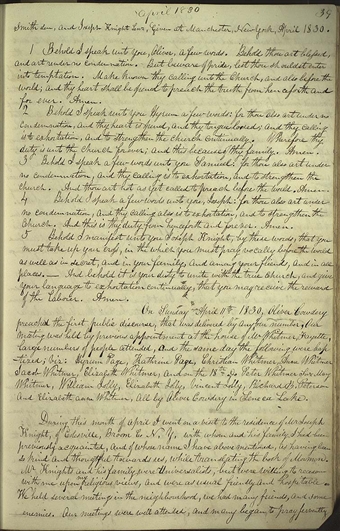 April 1830
39
Smith sen, and Joseph Knight Sen, Given at Manchester, New York, April 1830.
1 Behold I speak unto you, Oliver, a few words. Behold thou art blessed,
and art under no condemnation. But beware of pride, lest thou shouldst enter
into temptation. Make known thy calling unto the Church, and also before the
world; and thy heart shall be opened to preach the truth from henceforth and
for ever. Amen.
2 Behold I speak unto you Hyrum a few words: for thou also art under no
condemnation, and thy heart is opened, and thy tongue loosed; and thy calling
is to exhortation, and to strengthen the Church continually. Wherefore thy
duty is unto the Church forever; and this because of thy family. Amen.
3 Behold I speak a few words unto you Samuel: for thou also art under
no condemnation, and thy calling is to exhortation, and to strengthen the
Church. And thou art not as yet called to preach before the world, Amen.
4 Behold I speak a few words unto you, Joseph: for thou also art under
no condemnation, and thy calling also is to exhortation, and to strengthen the
Church. And this is thy duty from henceforth and forever. Amen
5 Behold I manifest unto you Joseph Knight, by these words, that you
must take up your cross, in the which you must pray vocally before the world
as well as in secret, and in your family, and among your friends, and in all
places. — And behold it is your duty to unite with the true Church, and give
your language to exhortation continually, that you may receive the reward
of the laborer. Amen.
On Sunday April 11th 1830, Oliver Cowdery
preached the first public discourse, that was delivered by any of our number. Our
meeting was held by previous appointment at the house of Mr Whitmer, Fayette,
large numbers of people attended, and the same day the following were bap
tized, Viz: Hyrum Page, Katherine Page, Christian Whitmer, Anne Whitmer
Jacob Whitmer, Elizabeth Whitmer, and on the 18th Do Peter Whitmer Sen, Mary
Whitmer, William Jolly, Elizabeth Jolly, Vincent Jolly, Richard B. Peterson
and Elizabeth Ann Whitmer, All by Oliver Cowdery in Seneca Lake.
During this month of April I went on a visit to the residence of Mr Joseph
Knight, of Colesville, Broom Co N. Y, with whom and his family I had been
previously acquainted, and of whose name I have above mentioned, as having been
so kind and thoughtful towards us, while translating the Book of Mormon.
Mr Knight and his family were Universalists, but were willing to reason
with me upon religious views, and were as usual friendly and hospitable. —
We held several meetings in the neighbourhood, we had many friends, and some
enemies. Our meetings were well attended, and many began to pray fervently